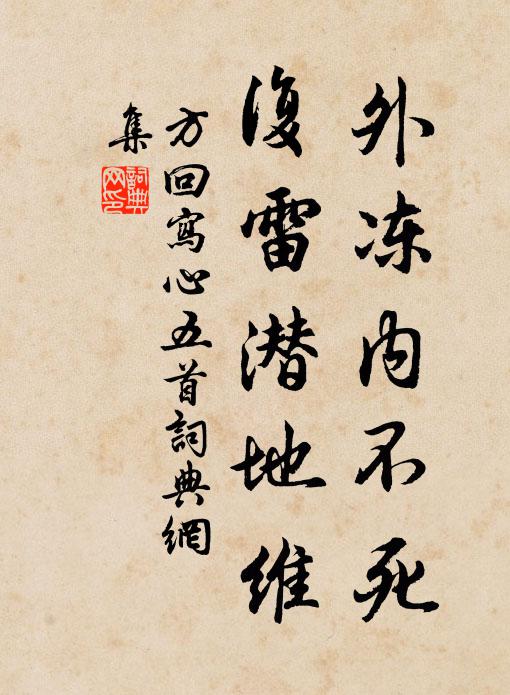 外冻内不死
復雷潜地维
方回寫心五首詞典網
集
詞典
网印